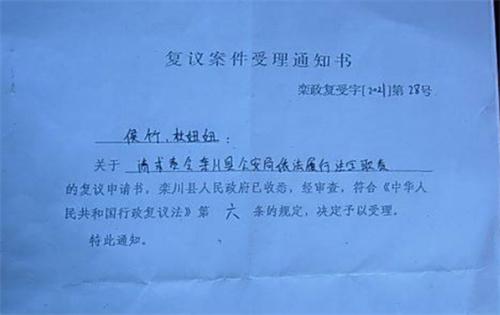 复议案件受理通知书
栾政复受字[2021]第28号
侯竹,杜妞妞:
关于 请求责令栾川县公安局依法履行法定职责
的复议申请书,栾川县人民政府已收悉,经审查,符合《中华人
民共和国行政复议法》第 六 条的规定,决定予以受理。
特此通知。